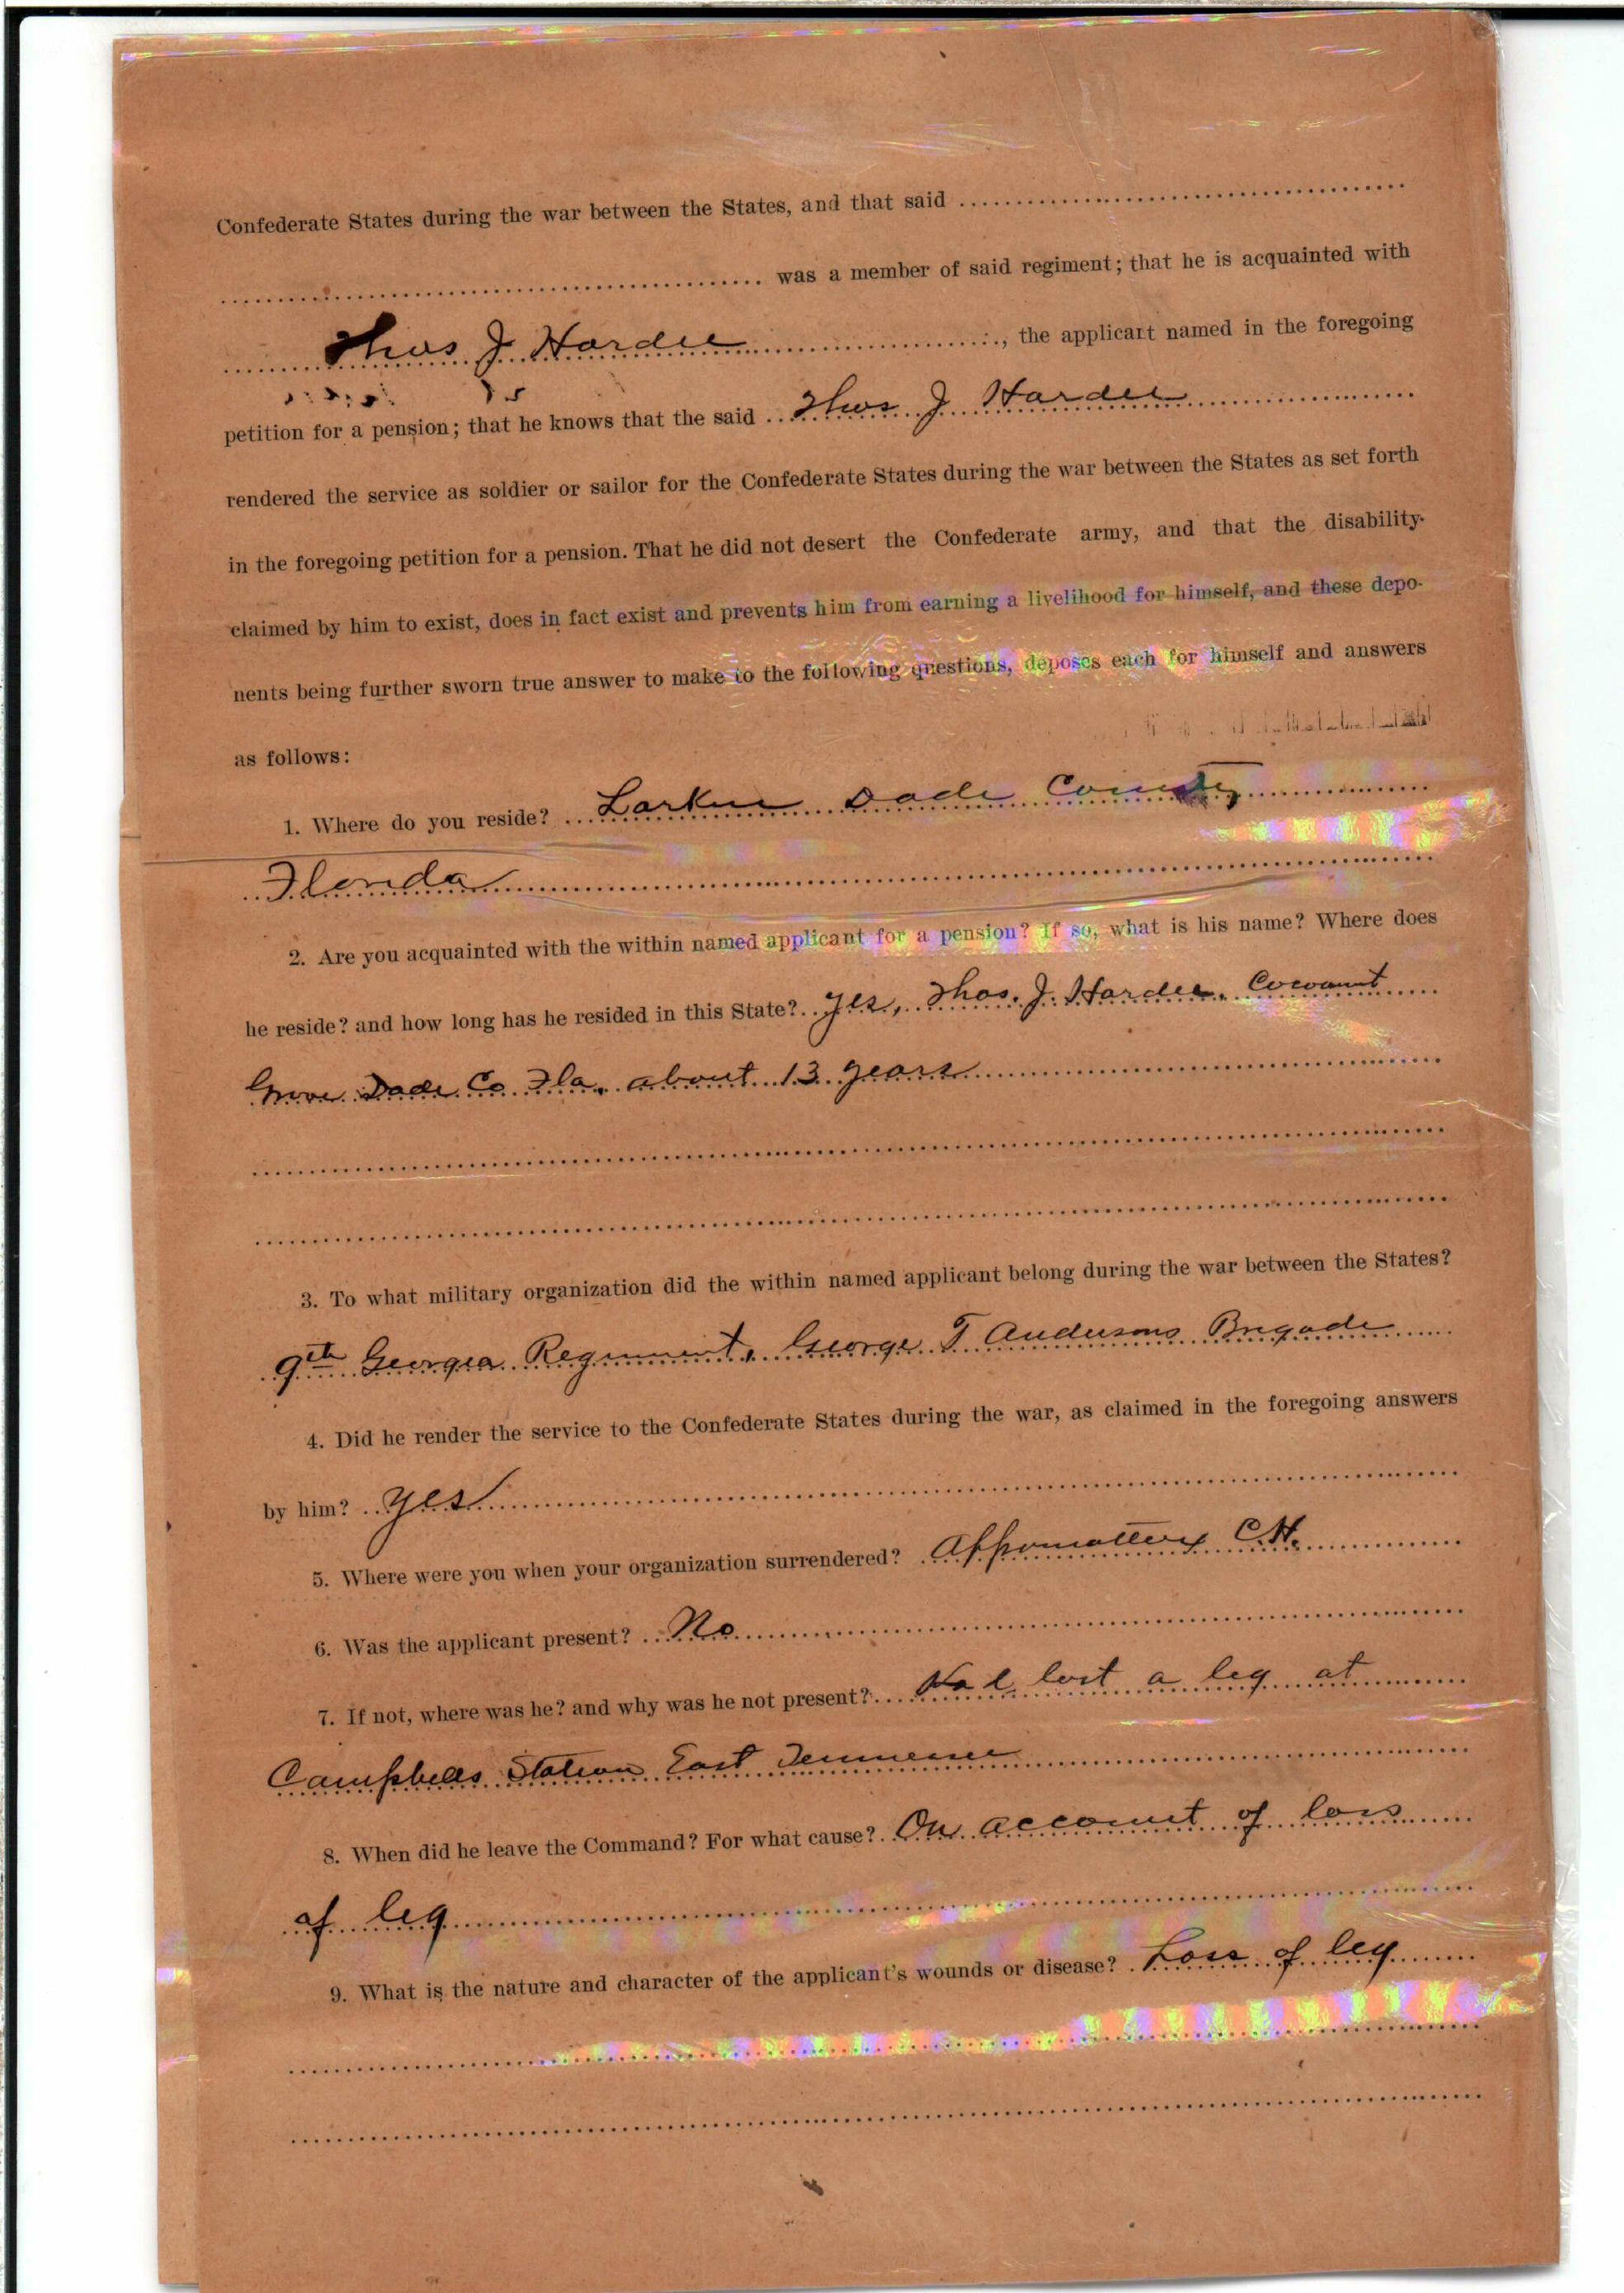 Confederate States during the war between the States, and that said
was a member of said regiment; that he is acquainted with
Thos J Hardee, the applicart named in the foregoing
petition for a pension; that he knows that the said Thos J Hardee
rendered the service as soldier or sailor for the Confederate States during the war between the States as set forth
in the foregoing petition for a pension. That he did not desert the Confederate army, and that the disability
claimed by him to exist, does in fact exist and prevents him from earning a livelihood for himself, and these depo-
nents being further sworn true answer to make to the following questions, deposes each for himself and answers
as follows:
1. Where do you reside? Larkin Dade County
Florida
2. Are you acquainted with the within named applicant for a pension? If so, what is his name? Where does
he reside? and how long has he resided in this State? Yes, Thos. J. Hardee. Cocoanut
Grove Dade Co Fla. about 13 years
3. To what military organization did the within named applicant belong during the war between the States?
9th Georgia Regiment, George T Andersons Brigade
4. Did he render the service to the Confederate States during the war, as claimed in the foregoing answers
by him? Yes
5. Where were you when your organization surrendered? Appomattox C.H.
6. Was the applicant present? No
7. If not, where was he? and why was he not present? Had lost a leg at
Campbells Station East Tennessee
8. When did he leave the Command? For what cause? On account of loss
of leg
9. What is the nature and character of the applicant's wounds or disease? Loss of leg